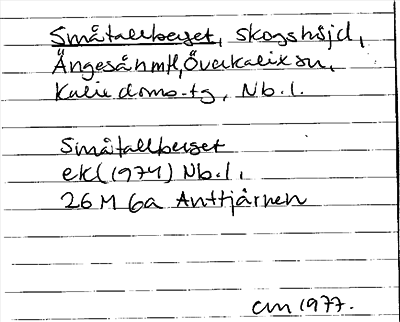 Småtallberget, skogshöjd,
Ängesån mfl, Överkalix sn,
Kalix doms-tg, Nb. l.
Småtallberget
ek (1974) Nb. l.
26 M 6a Anttjärnen
cm 1977.